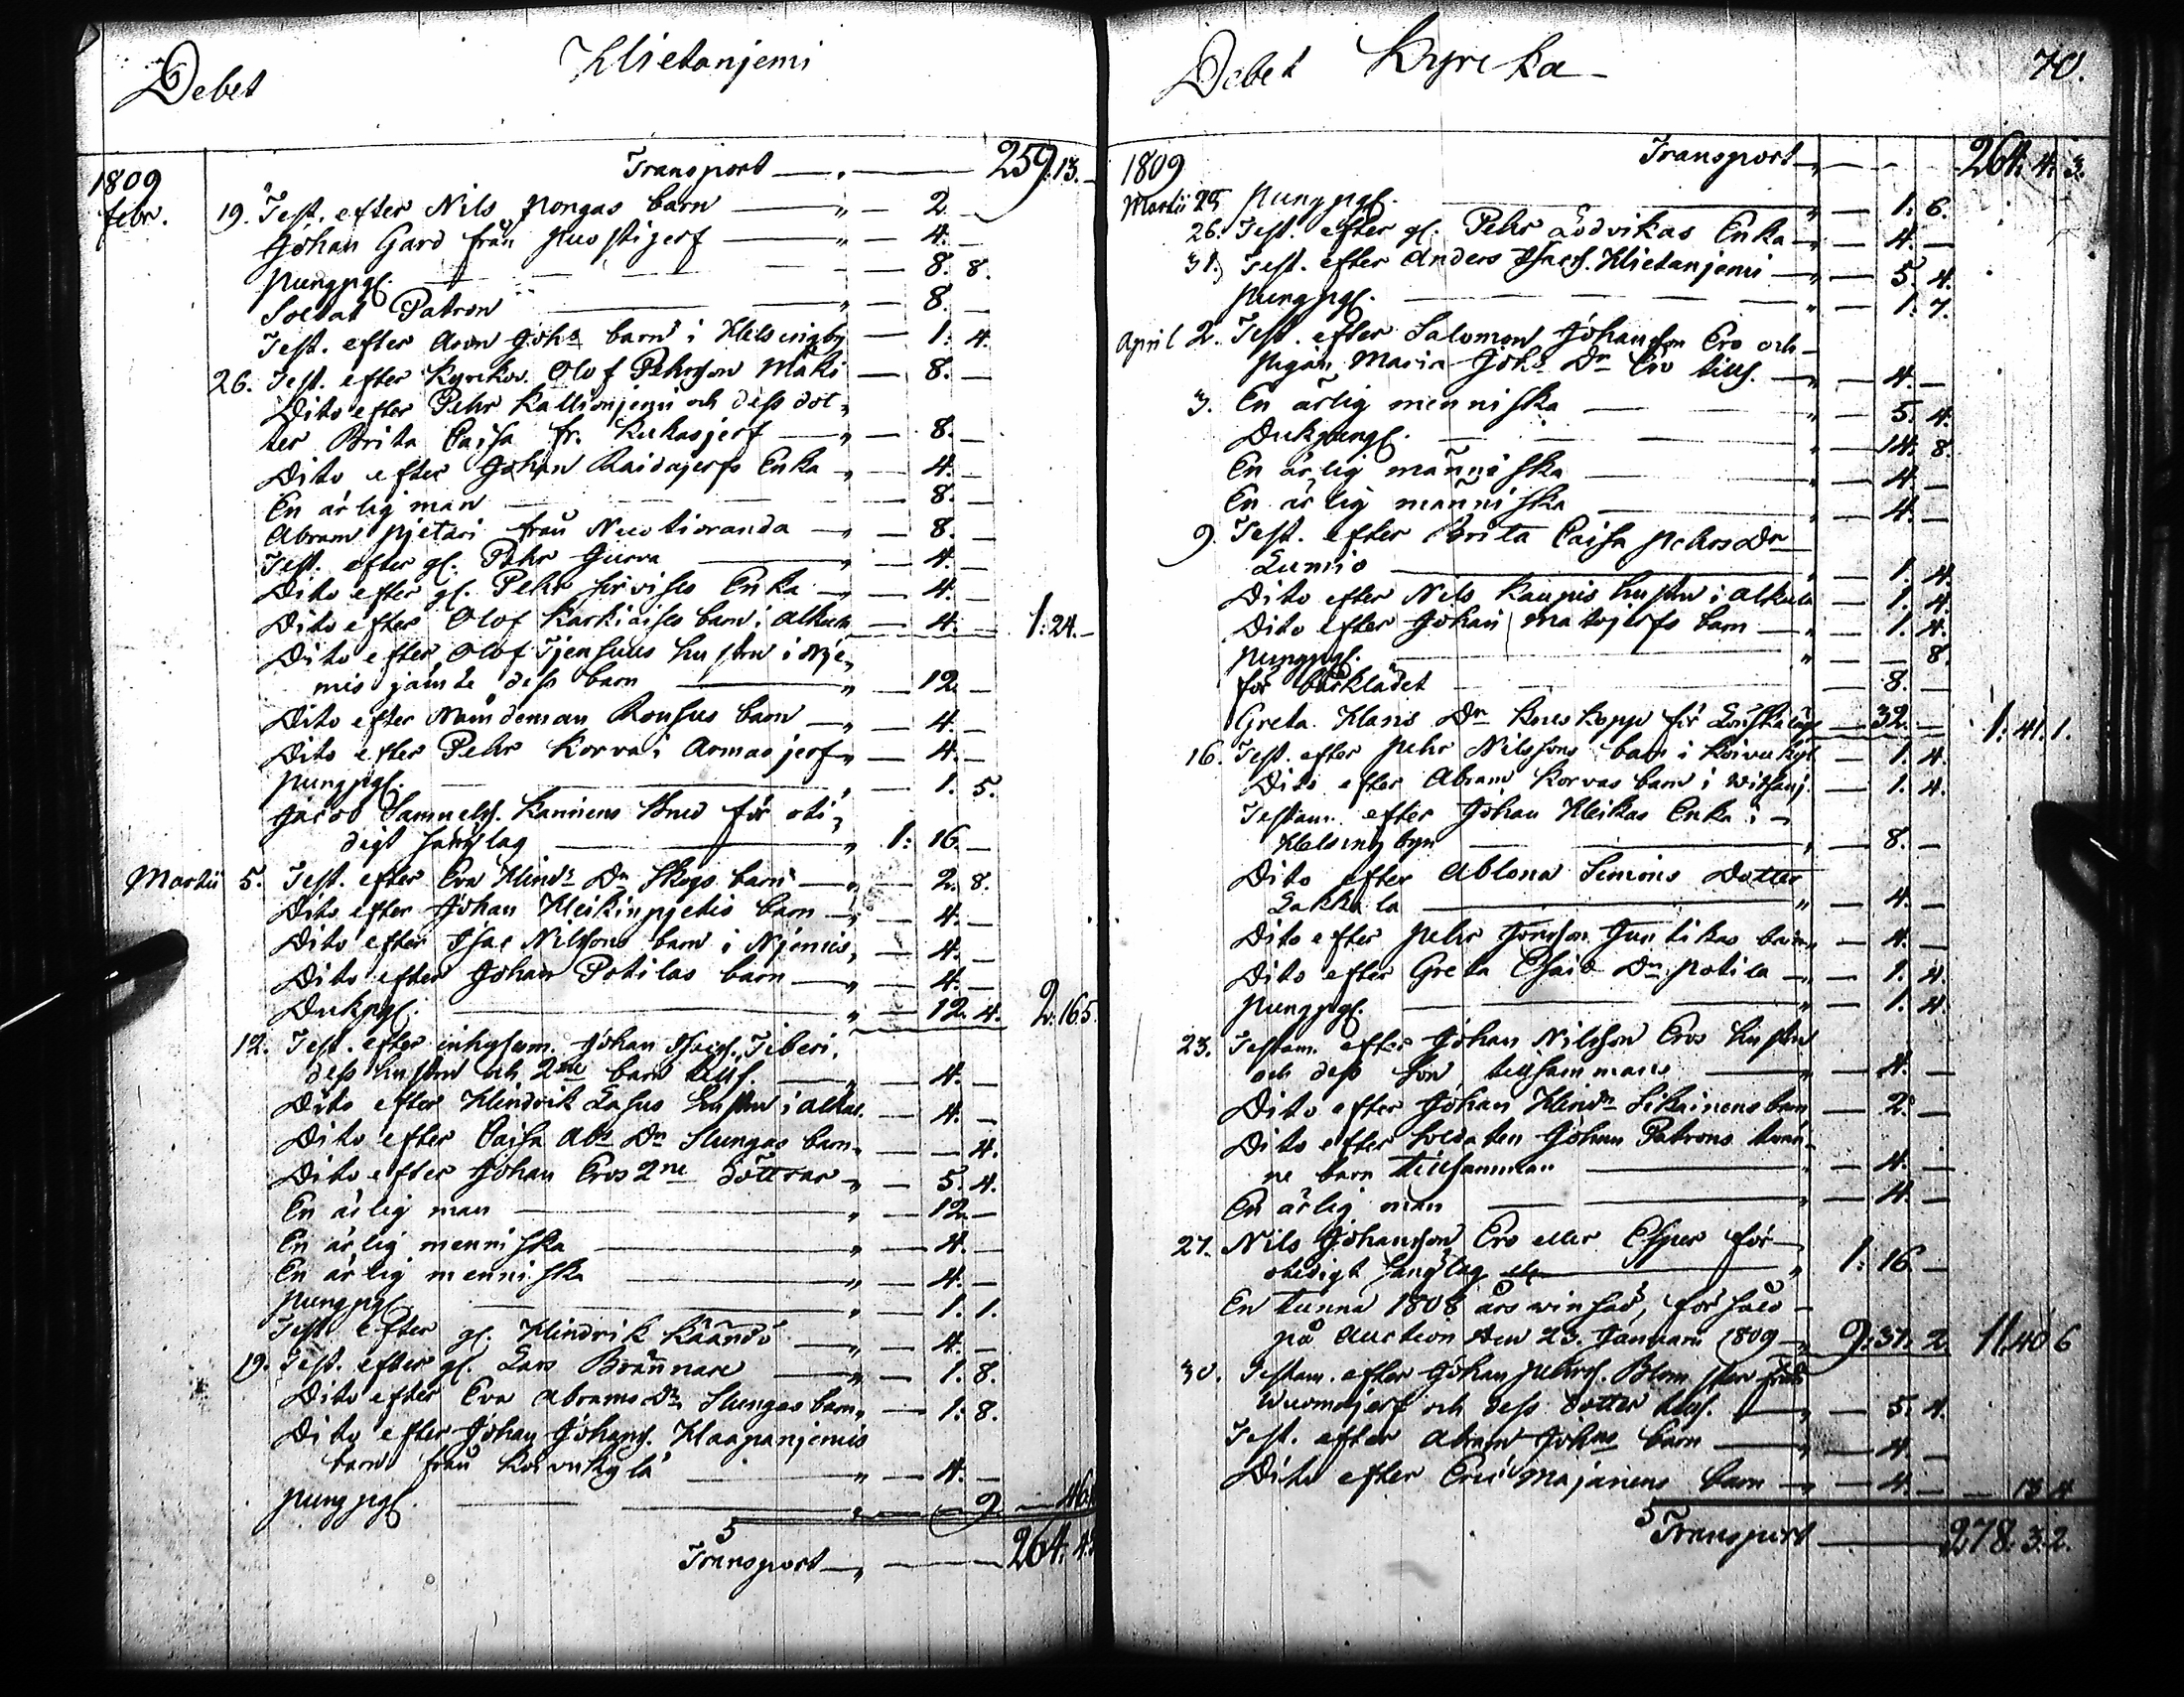 Debet Hietaniemi
Transport 259. 13.
1809
Febr. 19. Test. efter Nils Pongas barn " 2. —
Johan Gard från Puostijerf " 4. —
Pungpgr. 8. 8.
Soldat Patron " 8. —
Test. efter Aron Johs barn i Helsingby 1. 4.
26. Test. efter Kyrkov. Olof Pehrsson Mäki 8. —
Dito efter Pehr Kallionjemi och dess dot-
ter Brita Caisa fr. Kukasjerf " 8. —
Dito efter Johan Raidajerfs Enka " 4. —
En ärlig man 8. —
Abram Pjetari från Nuotioranda 8. —
Test. efter gl. Pehr Gurra " 4. —
Dito efter gl. Pehr Enka " 4. —
Dito efter Olof Karkiaises barn i Alkula 4. — 1: 24. —
Dito efter Olof hustru i Nje-
mis jämte dess barn " 12. —
Dito efter Nämdeman Rousus barn 4. —
Dito efter Pehr Korva i Armasjerf " 4. —
Pungpgr. " 1. 5.
Jacob Samuelss. Kanniens Son för oti-
digt sänglag " 1: 16. —
Martii 5. Test. efter Eva Hinds Dr Skogs barn " 2. 8.
Dito efter Johan Heikinpjetis barn " 4. —
Dito efter Isac Nilssons barn i Njemis, 4. —
Dito efter Johan Potilas barn " 4. —
Dukpgr. " 12. 4. 2. 16. 5.
12. Test. efter inhysm. Johan Isacss. Tiberi,
dess hustru och 2ne barn tills. " 4. —
Dito efter Hindrik Lasus hustru i Alkul. 4. —
Dito efter Caisa Abr Dr Slungas barn " — 4.
Dito efter Johan Eros 2ne döttrar " 5. 4.
En ärlig man " 12. —
En ärlig menniska " 4. —
En ärlig menniska " 4. —
Pungpgr. " 1. 1.
Test. efter gl. Hindrik Käändö " 4. —
19. Test. efter gl. Lars Brännare " 1. 8.
Dito efter Eva Abrams Dr Slungas barn " 1. 8.
Dito efter Johan Johanss. Haapanjemis
barn från Koivukylä " 4. —
Pungpgr. " 9. — 46.
Transport " 264. 4.
Debet Kyrcka 70.
1809 Transport " 264. 4. 3.
Martii 25 Pungpgr. " 1. 6.
26. Test. efter gl. Pehr Lodvikas Enka " 4. —
31. Test. efter Anders Isacss. Hietanjemi " 5. 4.
Pungpgr. " 1. 7.
April 2. Test. efter Salomon Johansson Ero och
Pigan Maria Johs Dr Ero tills. " 4. —
3. En ärlig menniska " 5. 4.
Dukpengr. " 14. 8.
En ärlig människa 4. —
En ärlig människa " 4. —
9. Test. efter Brita Caisa Pehrs Dr
Lunio " 1. 4.
Dito efter Nils Kaupis hustru i Alkula 1. 4.
Dito efter Johan Matojerfs barn 1. 4.
Pungpgr. " 8.
för bårklädet 8. —
Greta Hans Dr för 32. — 1: 41. 1.
16. Test. efter Pehr Nilssons barn i Koivukyl. 1. 4.
Dito efter Abram Korvas barn i Witsanj. 1. 4.
Testam. efter Johan Heikas Enka i
Helsingbyn " 8. —
Dito efter Ablona Simons Dotter
Lakkala " 4. —
Dito efter Pehr Jönsson Juntikas barn 4. —
Dito efter Greta Esais Dr Potila 1. 4.
Pungpgr. " 1. 4.
23. Testam. efter Johan Nilsson Eros hustru
och dess son tillsammans " 4. —
Dito efter Johan Hindr Sikainens barn 2. —
Dito efter Soldaten Johan Patrons tvän-
ne barn tillsamman " 4. —
En ärlig man " 4. —
27. Nils Johansson Ero eller Esper för
otidigt sänglag " 1: 16. —
En tunna 1808 års winsäd, försåld
på Auction den 23. Januarii 1809 " 9: 31. 2. 11. 40. 6
30. Testam. efter Johan Pehrss. Blomster från
Wuomajerf och dess dotter tills. " 5. 4.
Test. efter Abram Johns barn " 4. —
Dito efter Eric Majanens barn " 4. — — 13. 4
Transport 278. 3. 2.